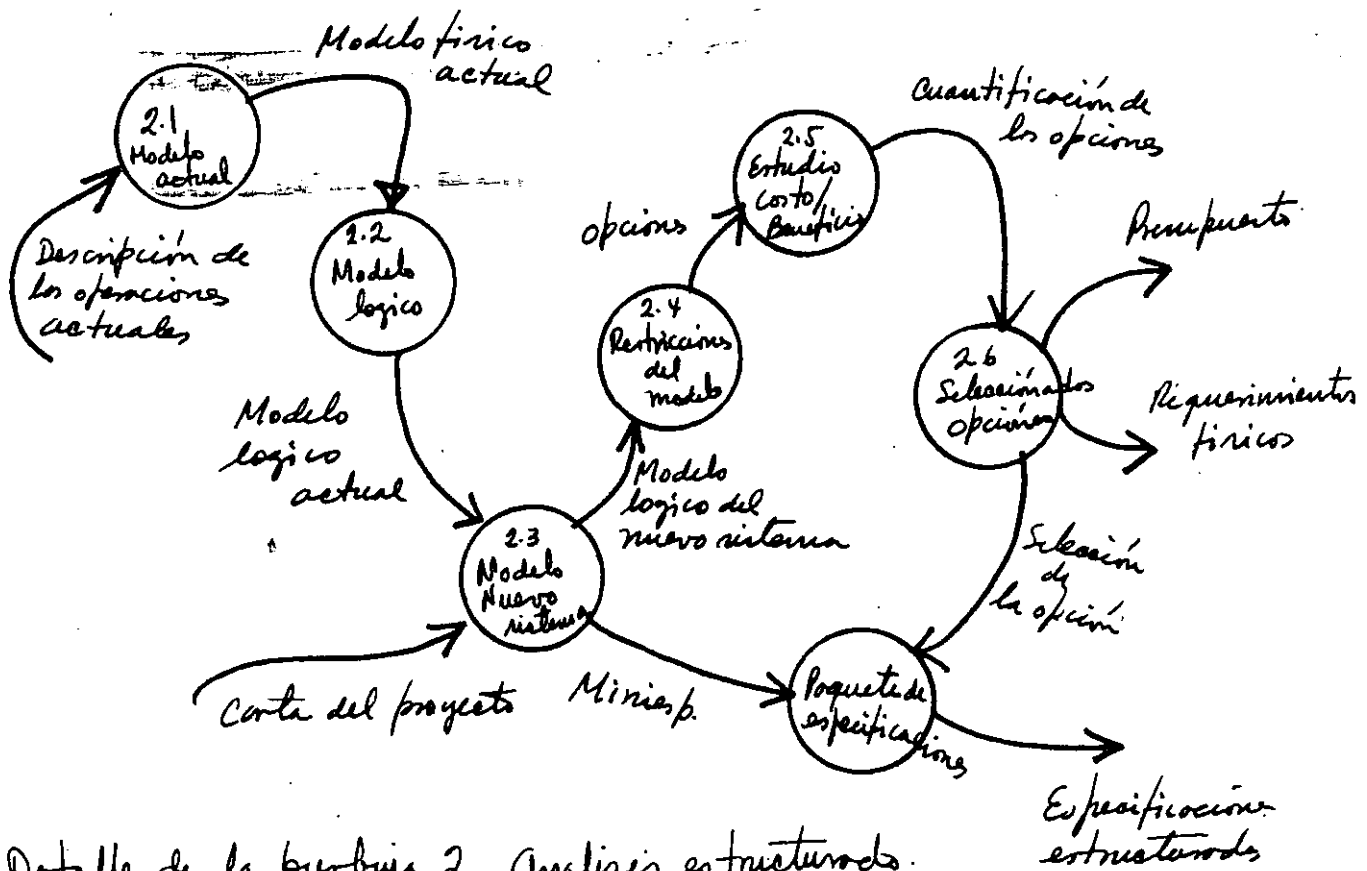 Modelo fisico
actual
2.1
Modelo
actual
Descripción de
las operaciones
actuales
2.2
Modelo
logico
Modelo
logico
actual
2.3
Modelo
Nuevo
sistema
Carta del proyecto
Modelo
logico del
nuevo sistema
Miniesp.
2.4
Restricciones
del
modelo
opciones
2.5
Estudio
costo/
Beneficio
Cuantificación de
las opciones
2.6
Selecciónados
opciónes
Presupuesto
Requerimientos
fisicos
Selección
de
la opción
Paquete de
especificaciones
Especificaciones
estructurada
Detalle de la burbuja 2. Analisis estructurado.